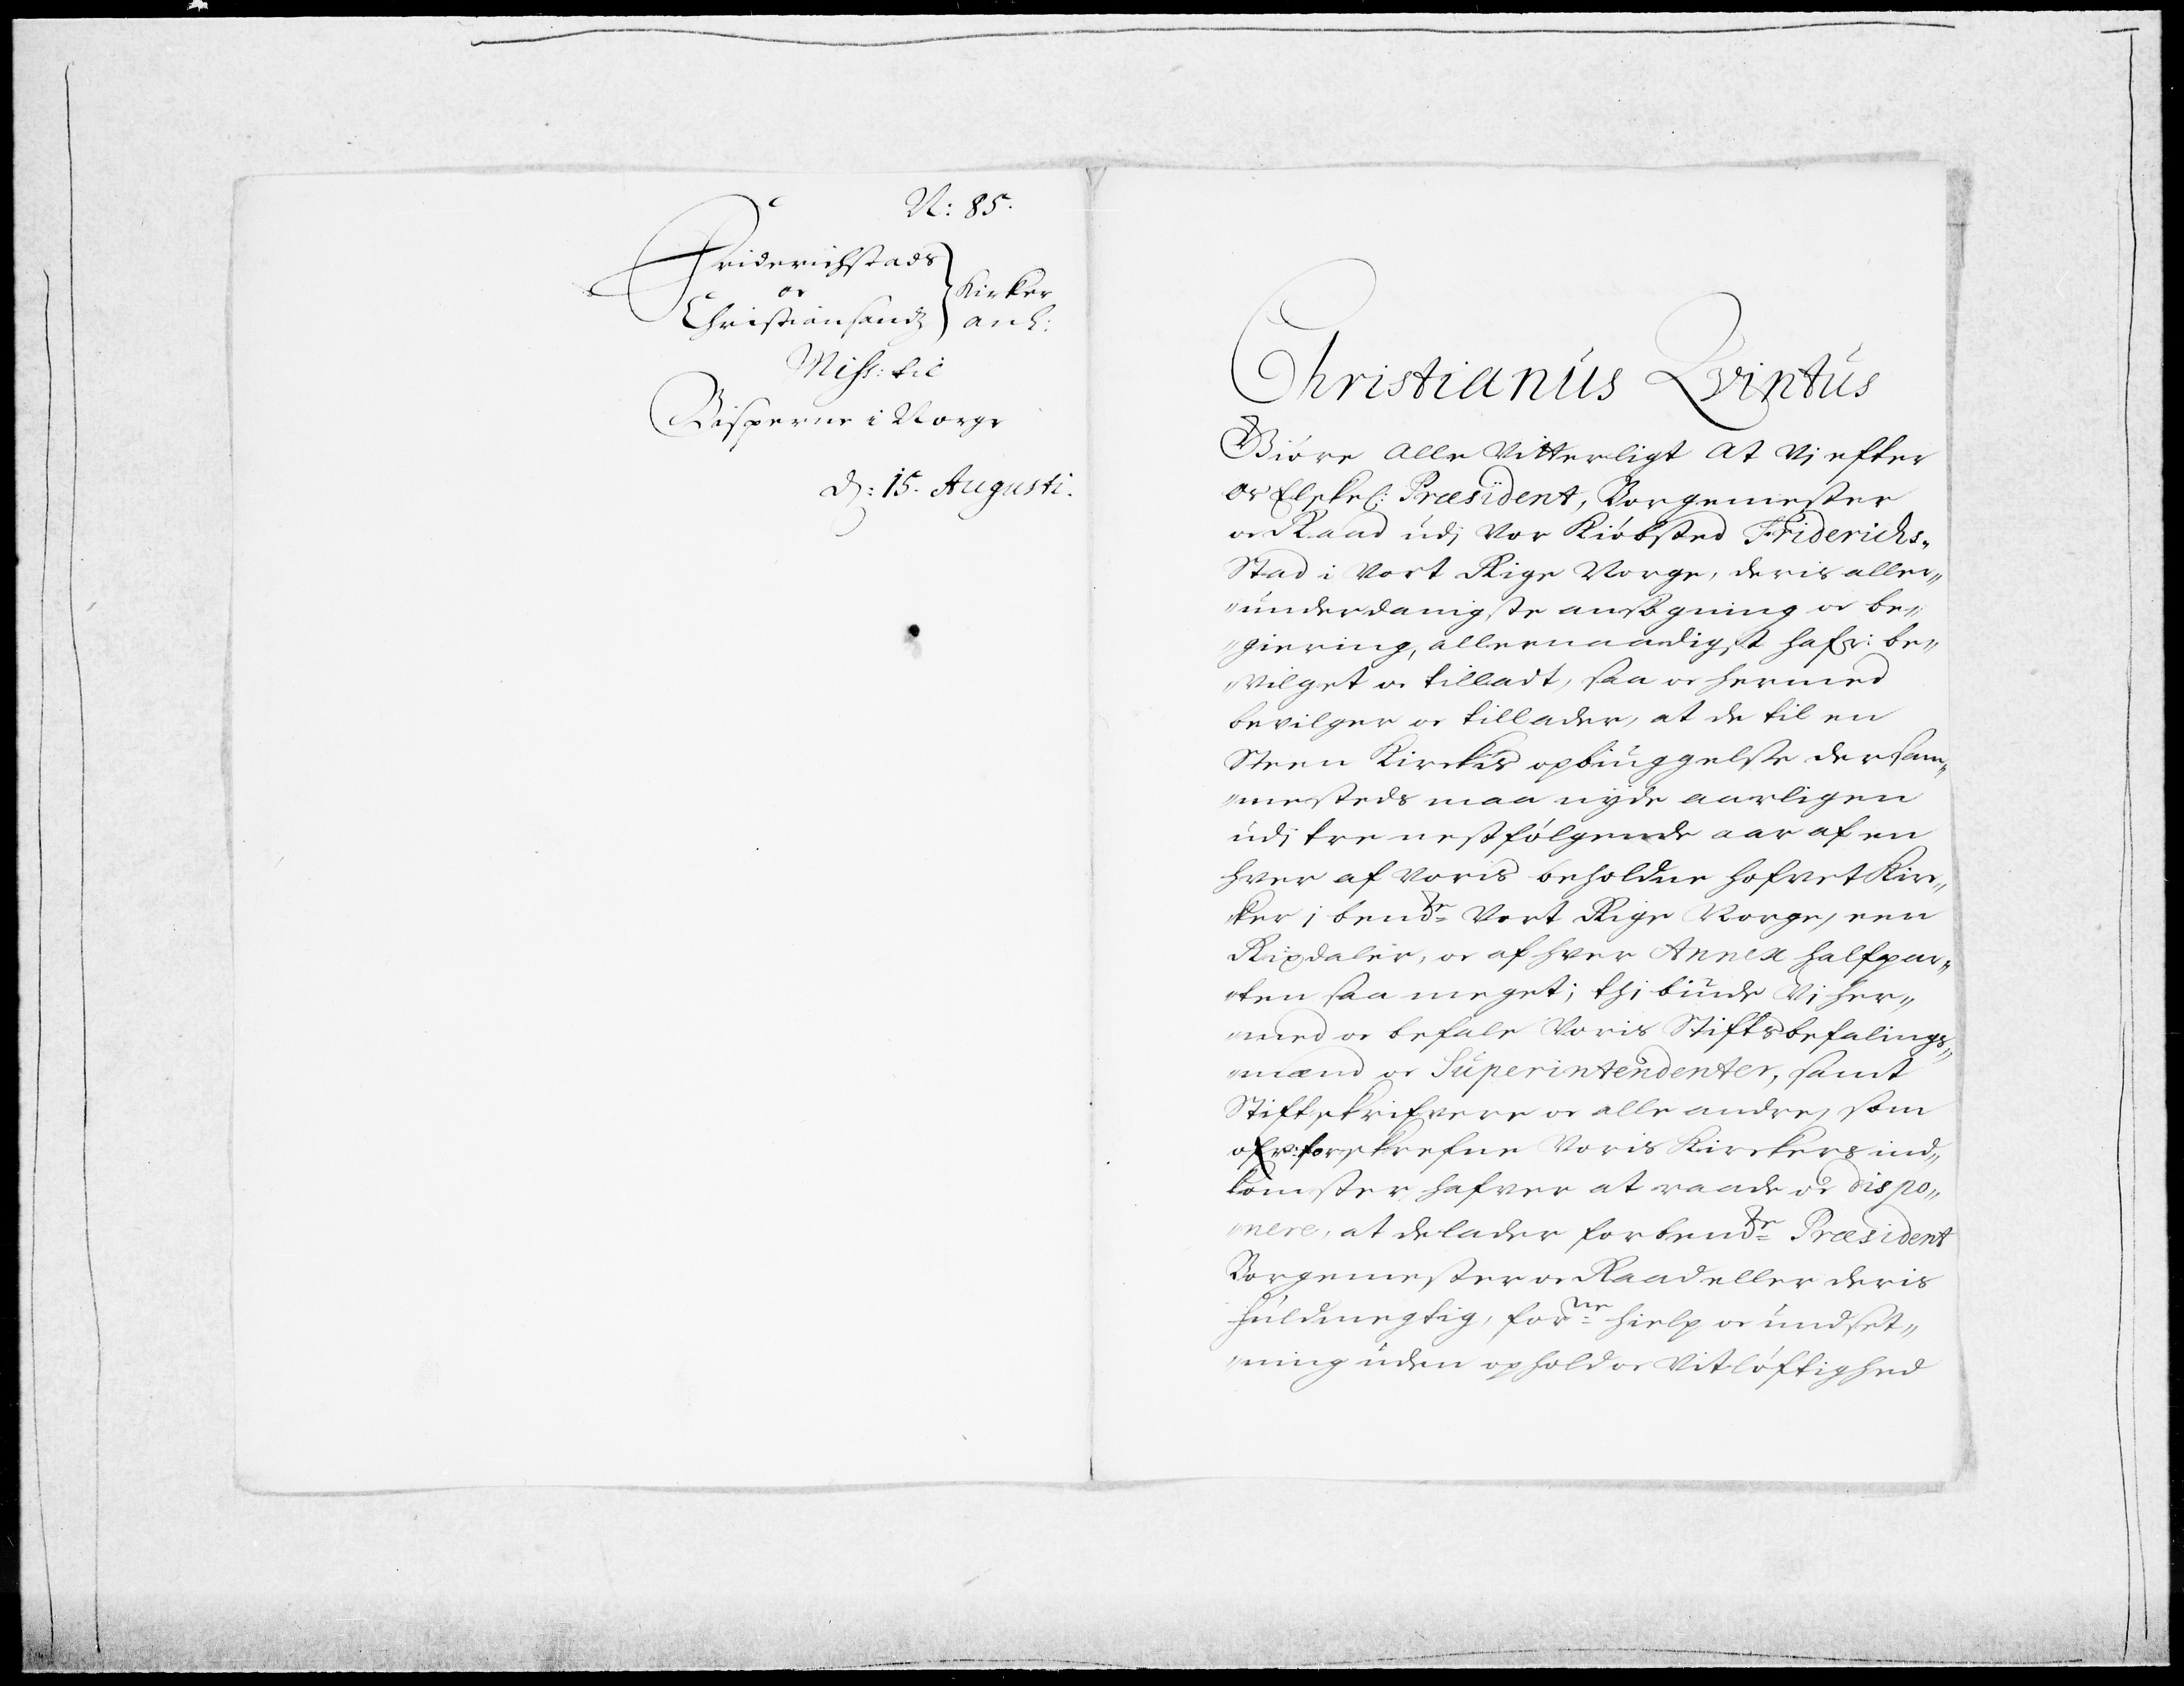 N: 85.
Friderichstads
oc
Christiansands
Kirker
anl:
Miss: til
Bisperne i Norge
d: 15. Augusti.
Christianus Qvintus
Giöre alle Vitterligt at Vi efter
os Elskel: Præsident, Borgemester
oc Raad udj Vor Kiöbsted Friderichs„
Stad i Vort Rige Norge, deris aller„
„underdanigste ansögning oc be„
„giering, allernaadigst hafr: be„
„Vilget oc tilladt, saa oc hermed
bevilger oc tillader, at de til en
Steen Kirckis opbüggelse der sam„
„mesteds maa nyde aarligen
udj tre nestfölgende aar af en
hver af Voris beholdne Hofvet Kir„
„ker i bemte Vort Rige Norge, een
Rixdaler, oc af hver Annex halfpar„
„ten saa meget; thi biude Vi her„
„med oc befale Voris Stiftsbefalings„
„mænd oc Superintendenter, samt
Stiftskrifvere oc alle andre, som
ofr: forskrefne Voris Kirckers ind„
komster hafver at raade oc dispo„
„nere, at de lader forbemte Præsident
Borgemester oc Raad eller deris
fuldmegtig, forne hielp oc undset„
„ning uden ophold oc Vitlöftighed